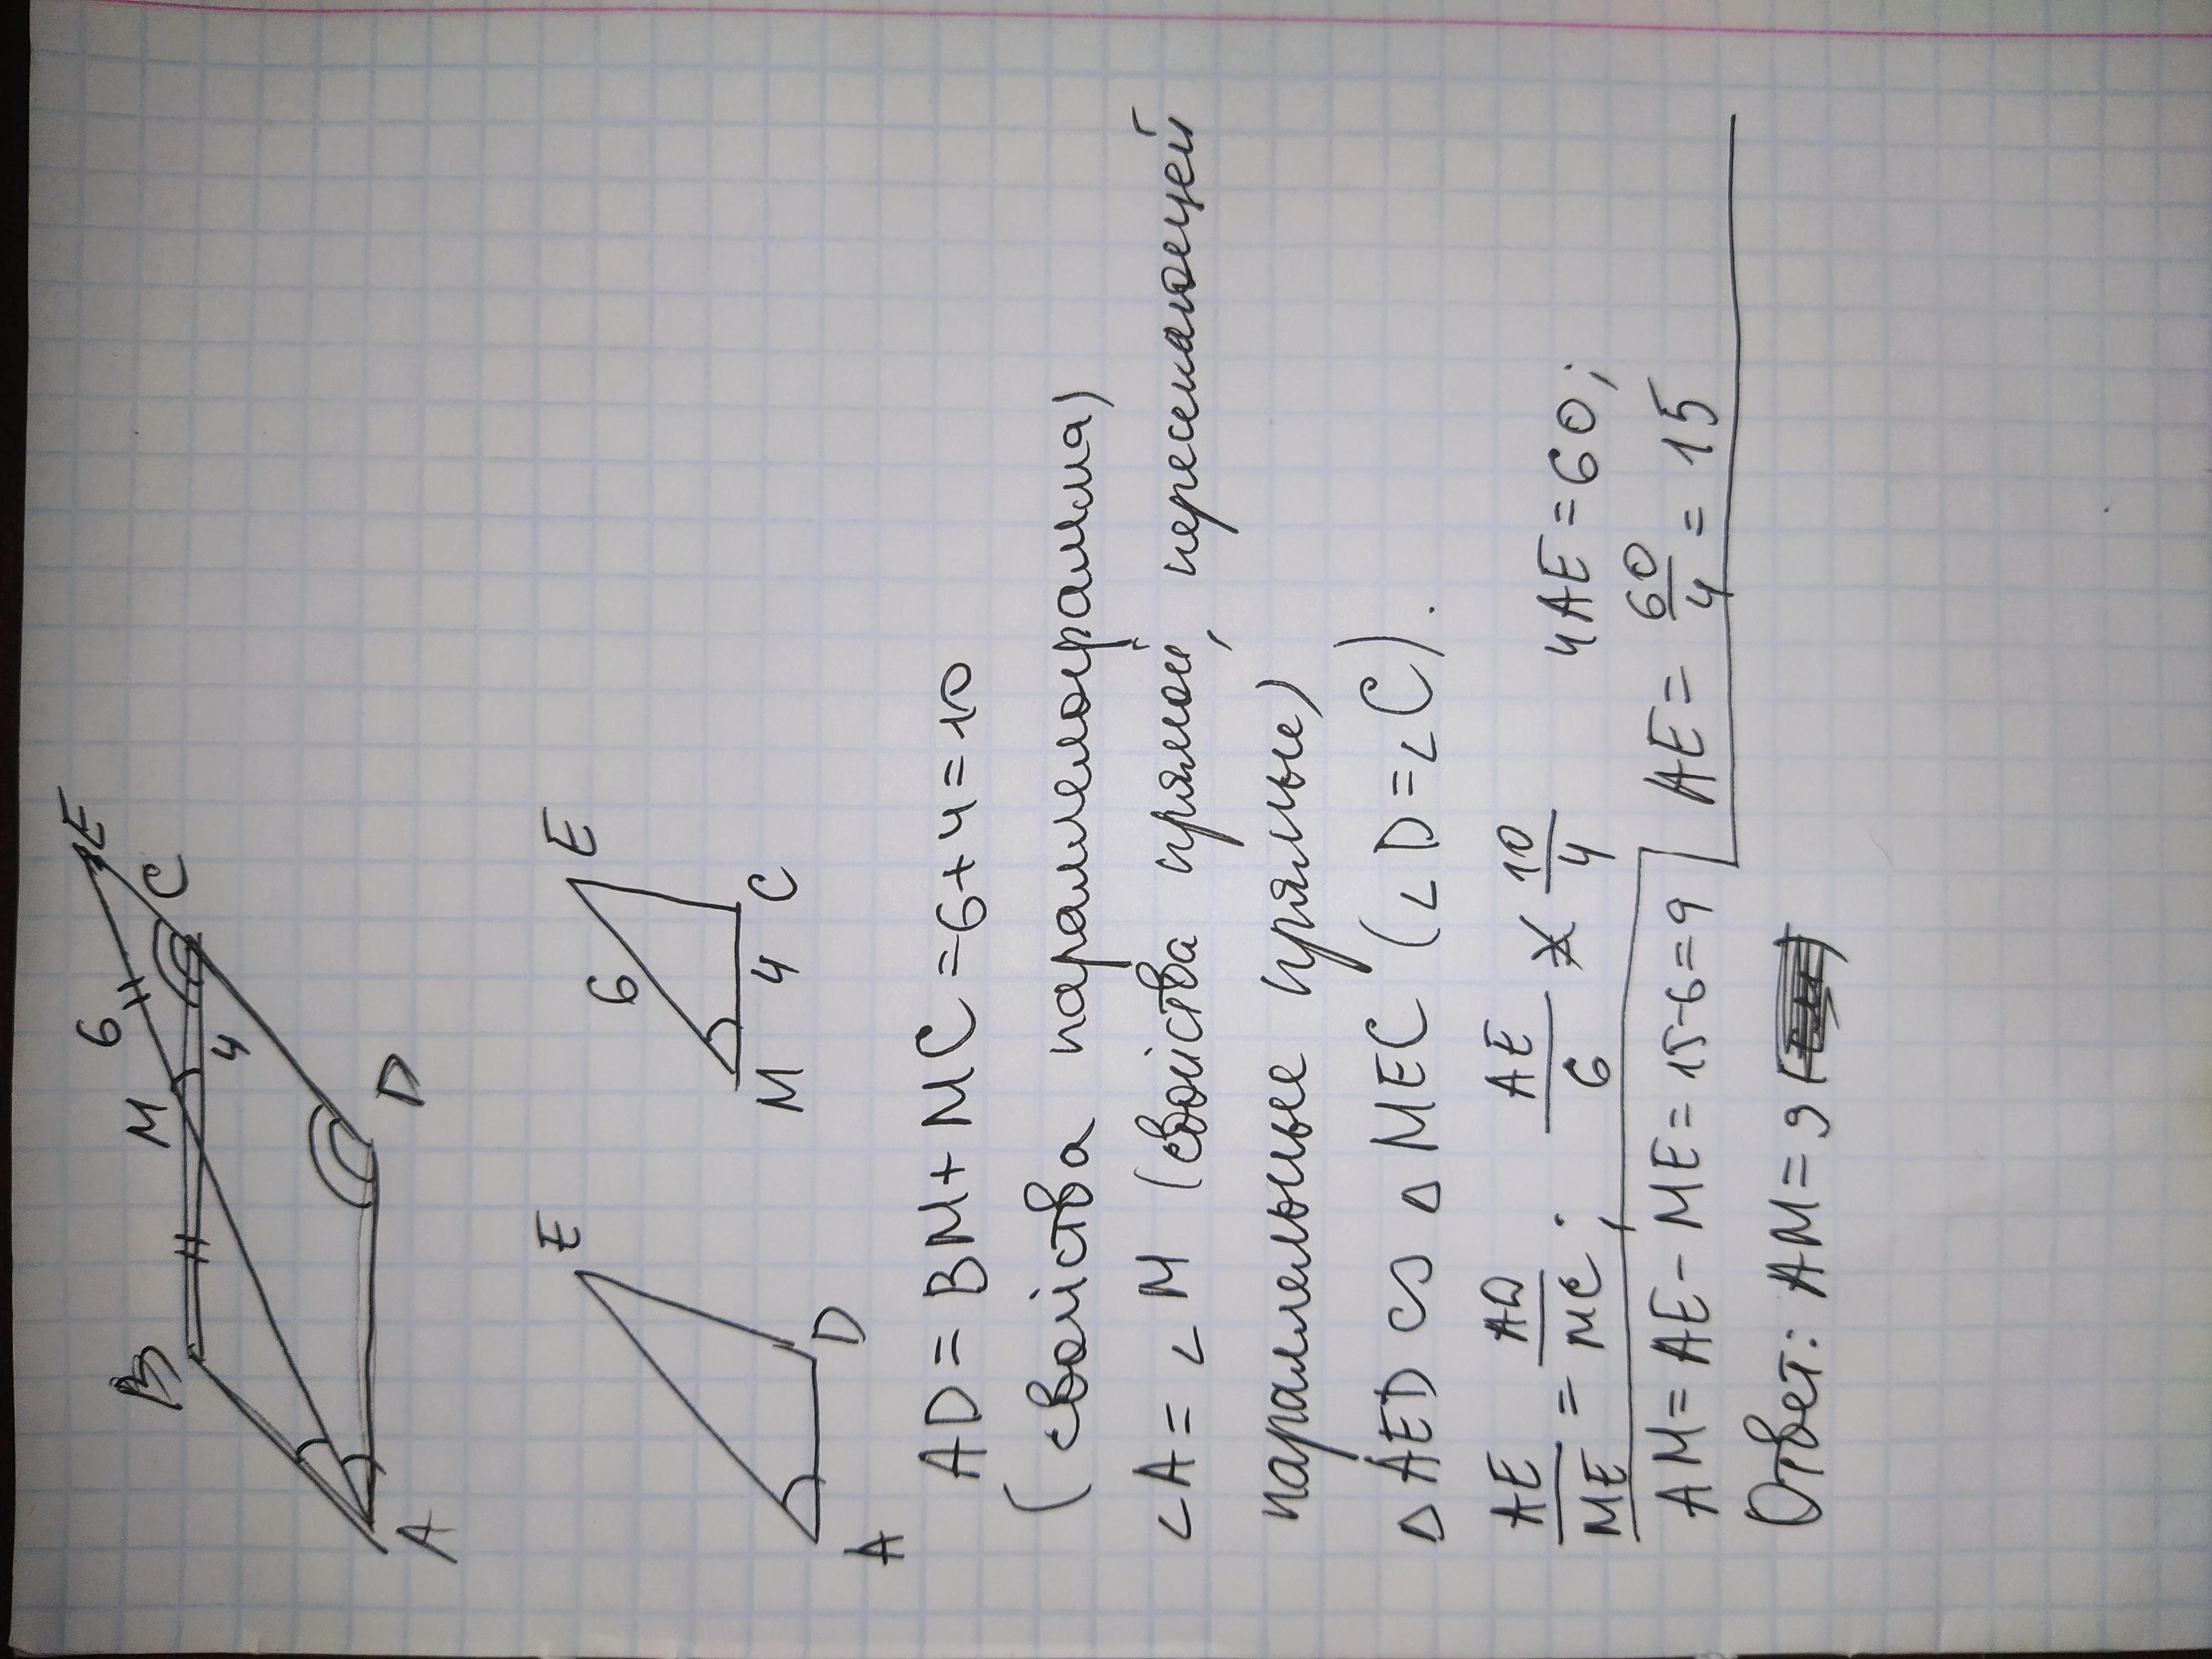 B M 6 E
4 C
A D
E 6 E
A D M 4 C
AD = BM + MC = 6 + 4 = 10
(свойства параллелограмма)
∠A = ∠M (свойства прямой, пересекающей
параллельные прямые)
△AED ∽ △MEC (∠D = ∠C).
AE/ME = AD/MC; AE/6 × 10/4 4AE = 60;
AM = AE - ME = 15-6=9 AE = 60/4 = 15
Ответ: AM = 9